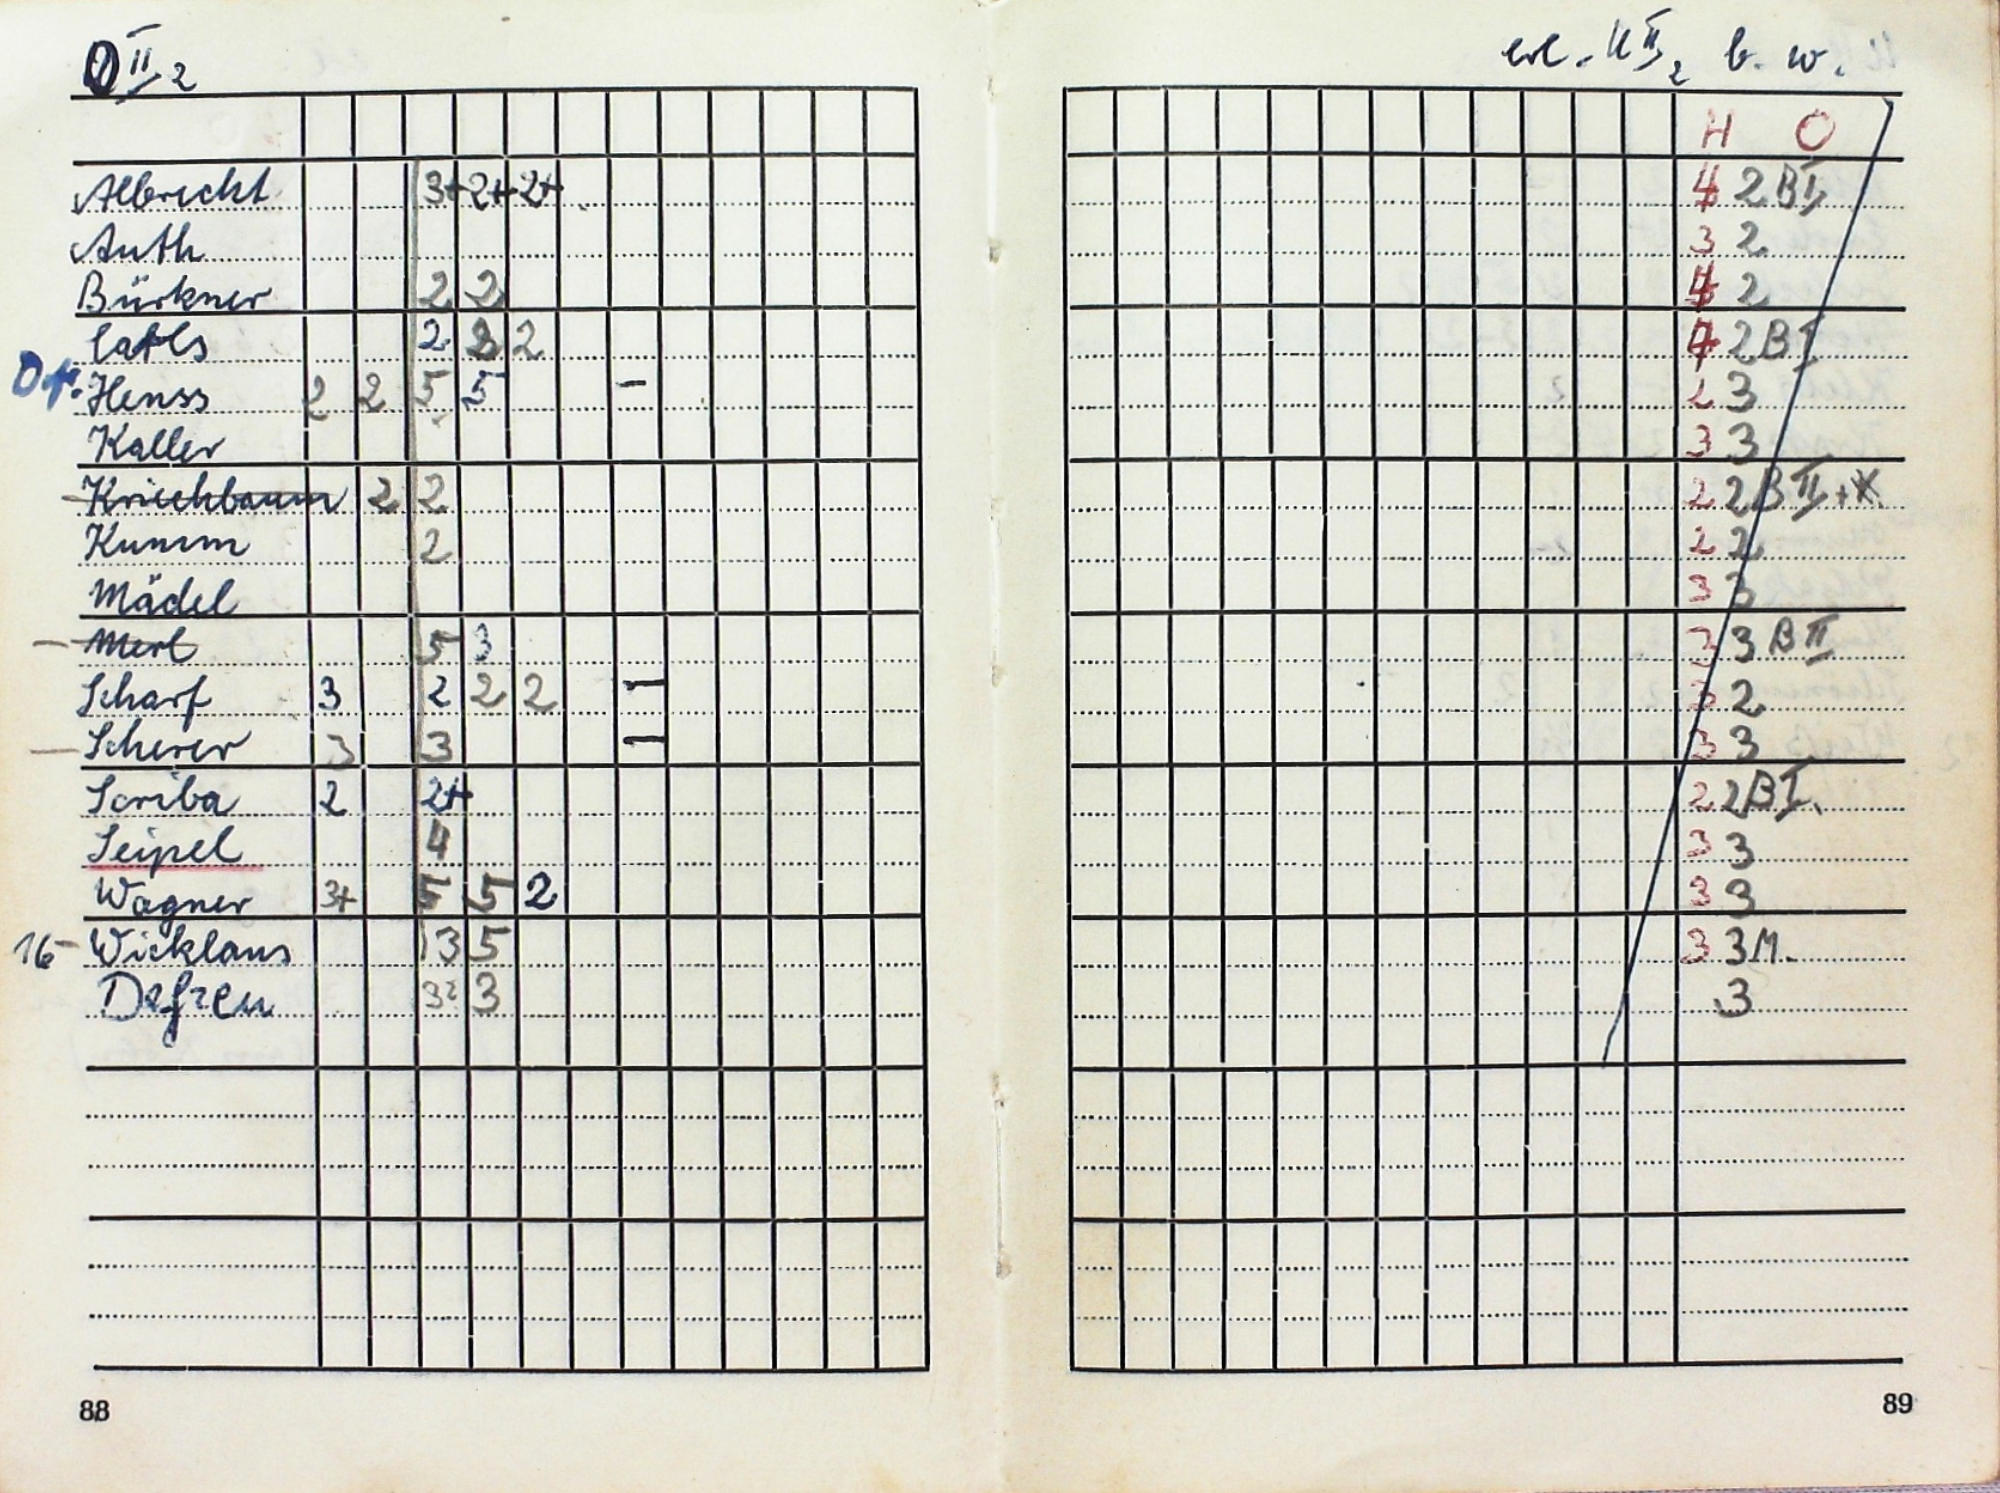 O II 2
erl. U II 2 b. w.
H O
Albrecht 3+ 2+ 2+ 4 2 B I
Auth 3 2
Bürkner 2 2 4 2
2 3 2 4 2 B I
Henss 2 2 5 5 – 2 3
Kaller 3 3
Kriechbaum 2 2 2 2 B II
Kumm 2 2 2
Mädel 3 3
– Merl 5 3 3 3 B II
Scharf 3 2 2 2 – 3 2
– Scherer 3 3 – 3 3
Scriba 2 2+ 2 2 B I.
Seipel 4 3 3
Wagner 3+ 5 5 2 3 3
16 – Wicklaus 3 5 3 3 M.
3 3
88
89